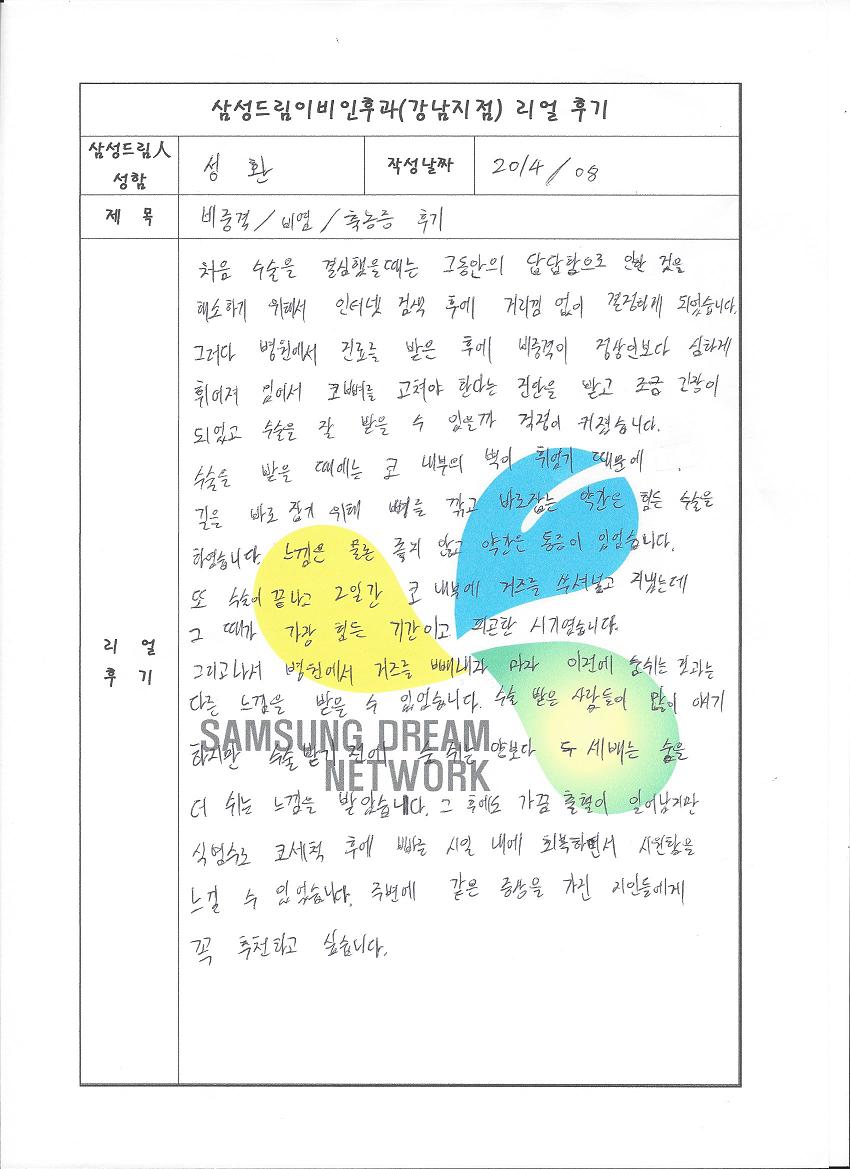 삼성드림이비인후과(강남지점) 리얼 후기
삼성드림人 성함
성 환
작성날짜
2014/08
제 목
비중격/비염/축농증 후기
리 얼
후 기
처음 수술을 결심했을때는 그동안의 답답함으로 인한 것을
해소하기 위해서 인터넷 검색 후에 거리낌 없이 결정하게 되었습니다.
그러다 병원에서 진료를 받은 후에 비중격이 정상인보다 심하게
휘어져 있어서 코뼈를 고쳐야 한다는 진단을 받고 조금 긴장이
되었고 수술을 잘 받을 수 있을까 걱정이 커졌습니다.
수술을 받을 때에는 코 내부의 벽이 휘었기 때문에
길을 바로 잡기 위해 뼈를 깎고 바로잡는 약간은 힘든 수술을
하였습니다. 느낌은 물론 좋지 않고 약간은 통증이 있었습니다.
또 수술이 끝나고 2일간 코 내부에 거즈를 쑤셔넣고 지냈는데
그 때가 가장 힘든 기간이고 피곤한 시기였습니다.
그리고나서 병원에서 거즈를 빼내자 마자 이전에 숨쉬는 것과는
다른 느낌을 받을 수 있었습니다. 수술 받은 사람들이 많이 얘기
하지만 수술받기 전에 숨 쉬는 양보다 두 세배는 숨을
더 쉬는 느낌을 받았습니다. 그 후에도 가끔 출혈이 일어났지만
식염수로 코세척 후에 빠른 시일 내에 회복하면서 시원함을
느낄 수 있었습니다. 주변에 같은 증상을 가진 지인들에게
꼭 추천하고 싶습니다.
SAMSUNG DREAM
NETWORK